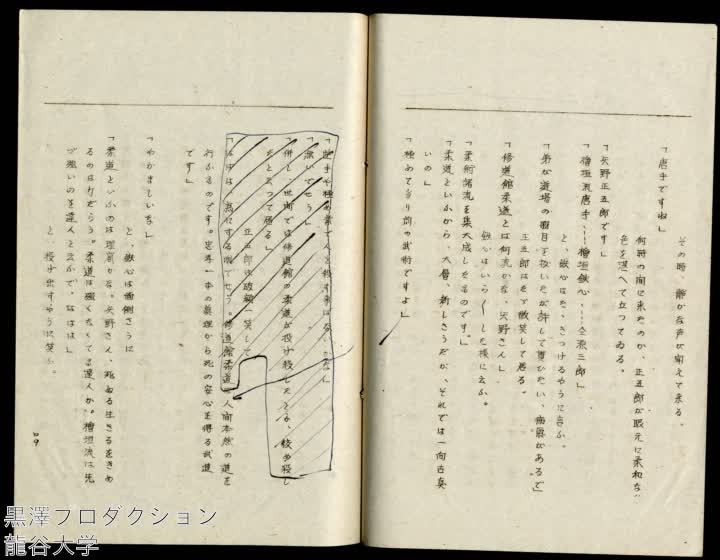 その時、静かな声が聞えて来る。
「唐手ですね」
何時の間に来たのか、正五郎が眼元に柔和な
色を湛へて立つてゐる。
「矢野正五郎です」
「檜垣流唐手……檜垣鉄心……源三郎」
と、鉄心はたゝきつけるやうに言ふ。
正五郎はたゞ微笑して居る。
「修道館柔道とは何流かな、矢野さん」
鉄心はいら〳〵した様に云ふ。
「柔術諸流を集大成したものです。」
「柔道といふから、大層、新しさうだが、それでは一向古臭
いの」
「極めて当り前の武術ですよ」
「唐手
強いでせう」
「併し、世間では修道館の柔道が投げ殺したとか、絞め殺し
たとか云つて居る」
正五郎は破顔一笑して
修道館柔道は人間本然の道を
行ふるのです。忠孝一本の真理から死の安心を得る武道
です」
「やかましいな」
と、鉄心は面倒さうに
「柔道といふのは理窟かな。矢野さん、死ぬる生きるをきめ
るのは力だらう。柔道は強くなくても達人か。檜垣流は先
づ強いのを達人と云ふで、はははは」
と、投げ出すやうに笑ふ。
黒澤プロダクション
龍谷大学